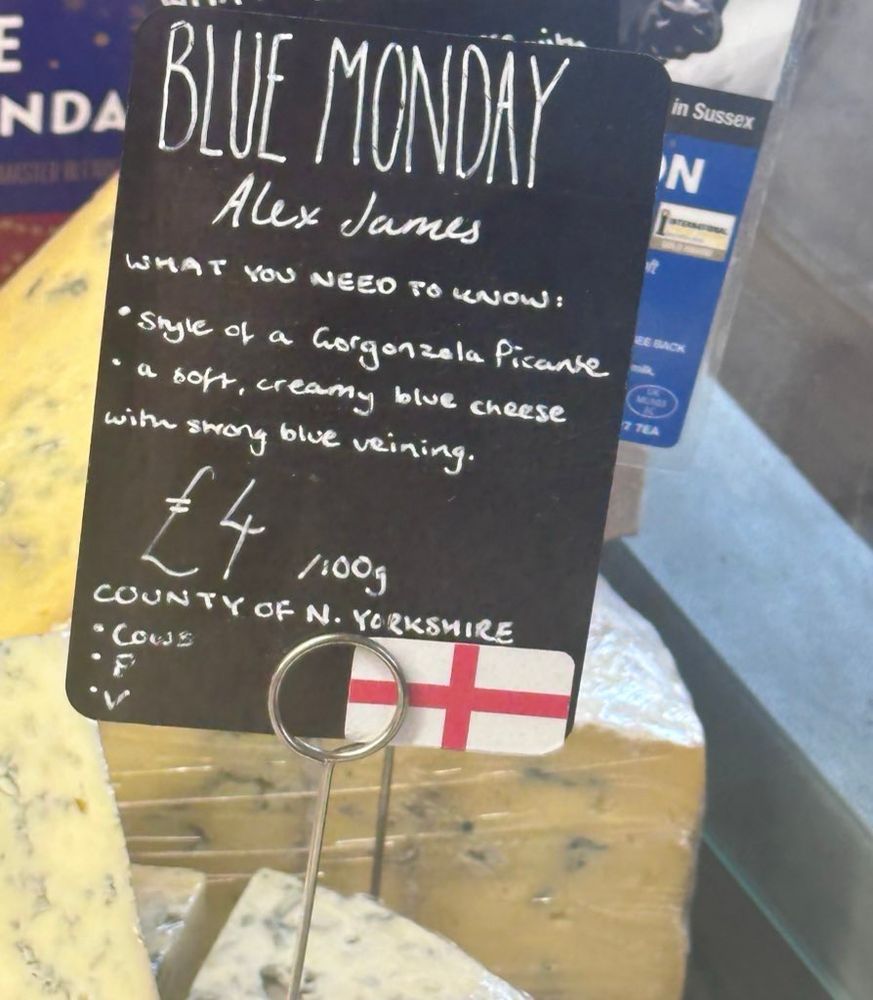 BLUE MONDAY
Alex James
WHAT YOU NEED TO KNOW:
• Style of a Gorgonzola Picante
• a soft, creamy blue cheese
with strong blue veining.
£4 /100g
COUNTY OF N. YORKSHIRE
• Cows
• P
• V
E
NDA
in Sussex
ON
INTERNATIONAL
SEE BACK
milk
UK
7 TEA